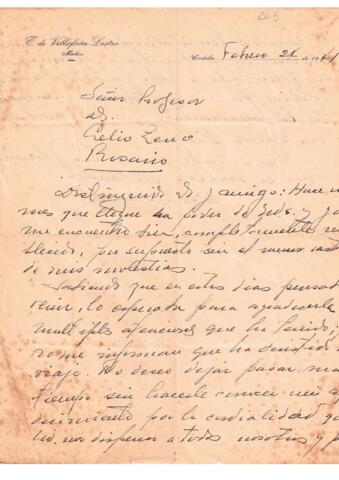 205
T. de Villafañe Lastra
Médico
Córdoba, Febrero 21 de 194
Señor Profesor
Dr.
Celio
Rosario
Distinguido Dr. y amigo: Hace
mes que estuve en poder de Uds. Ya
me encuentro bien, completamente res
tablecido, por supuesto sin el menor
de mis molestias.
Sabiendo que en estos días pensaba
venir, lo esperaba para agradecerle
múltiples atenciones que ha tenido;
ro me informan que ha desistido
viaje. No deseo dejar pasar
tiempo sin hacerle conocer mi
por la cordialidad
Ud. nos dispensa a todos nosotros y